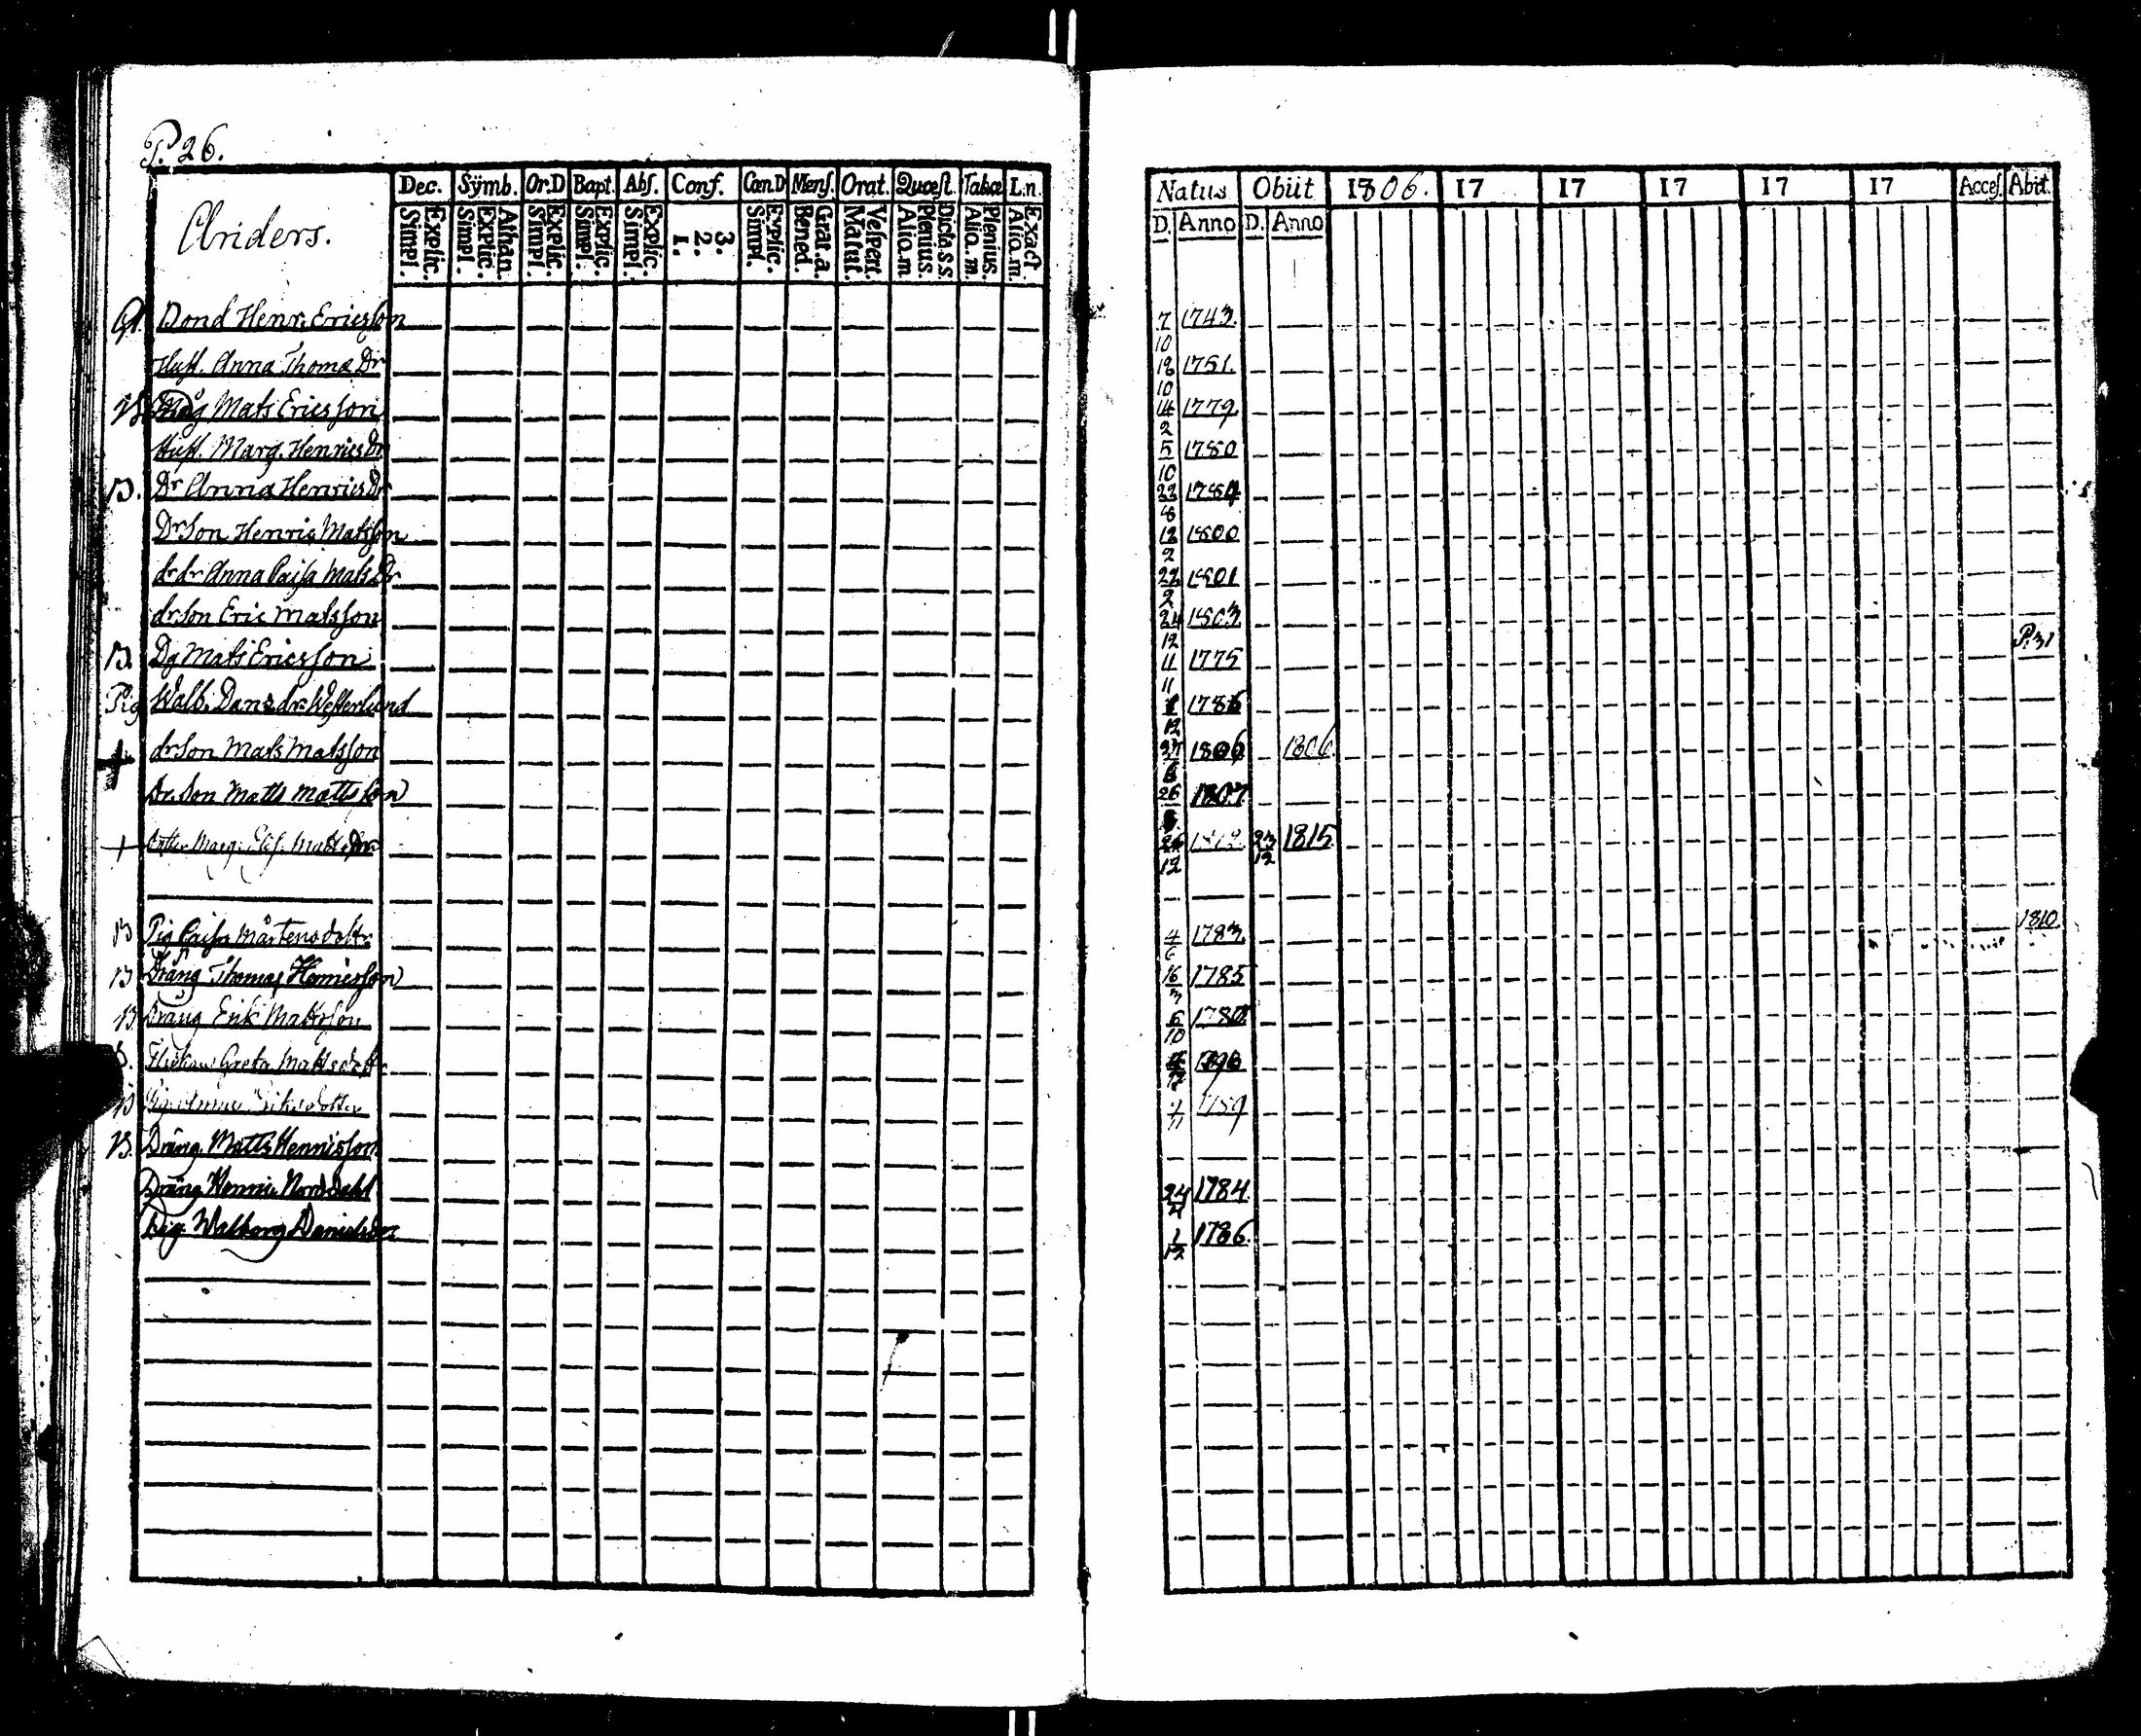 P. 26.
Anders.
Dec. Sÿmb. Or.D Bapt. Abſ. Conf. Can.D Menſ. Orat. Quœſt. Tabœ L.n.
Simpl. Explic. Simpl. Explic. Athan. Simpl. Explic. Simpl. Explic. Simpl. Explic. 1. 2. 3. Simpl. Explic. Bened. Grat.a. Matut. Veſpert. Aliq.m Plenius. Dicta.s.s. Aliq.m. Plenius. Aliq.m. Exact
Natus Obiit 1806. 17 17 17 17 17 Acceſ. Abit.
D. Anno D. Anno
Bond Henr. Ericsson 7/10 1743.
Huſt. Anna Thomæ Dr 18/10 1751.
Måg Mats Ericsson 14/2 1779
Huſt. Marg. Henrics Dr 5/10 1780
B. Dr Anna Henrics Dr 22/8 1784
Dr Son Henric Matsson 12/2 1800
dr dr Anna Caisa Mats Dr 22/2 1801
dr Son Eric Matsson 24/12 1803
B. Dg Mats Ericsson 11/11 1775 P. 31
Pig Walb. Dans dr Westerlund 1/12 1786
+ dr Son Mats Matsson 1806 1806.
Dr. Son Matts Mattsson 26 1807
+ Marg. Matts Dr 26/12 23/12 1815
B Pig Caisa Mårtensdottr 4/6 1783. 1810
B Dräng Thomas Henricsson 16/3 1785
B Dräng Erik Mattsson 6/10 1780
Greta Mattsdottr
B 1789
B. Dräng. Matts Henricsson
Dräng Henric Norddahl 24 1784.
Pig. Walborg Danielsdr. 1/12 1786.